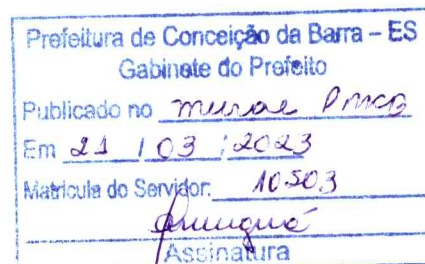 Prefeitura de Conceição da Barra – ES
Gabinete do Prefeito
Publicado no mural PMCB
Em 21 / 03 / 2023
Matrícula do Servidor: 10503
Assinatura